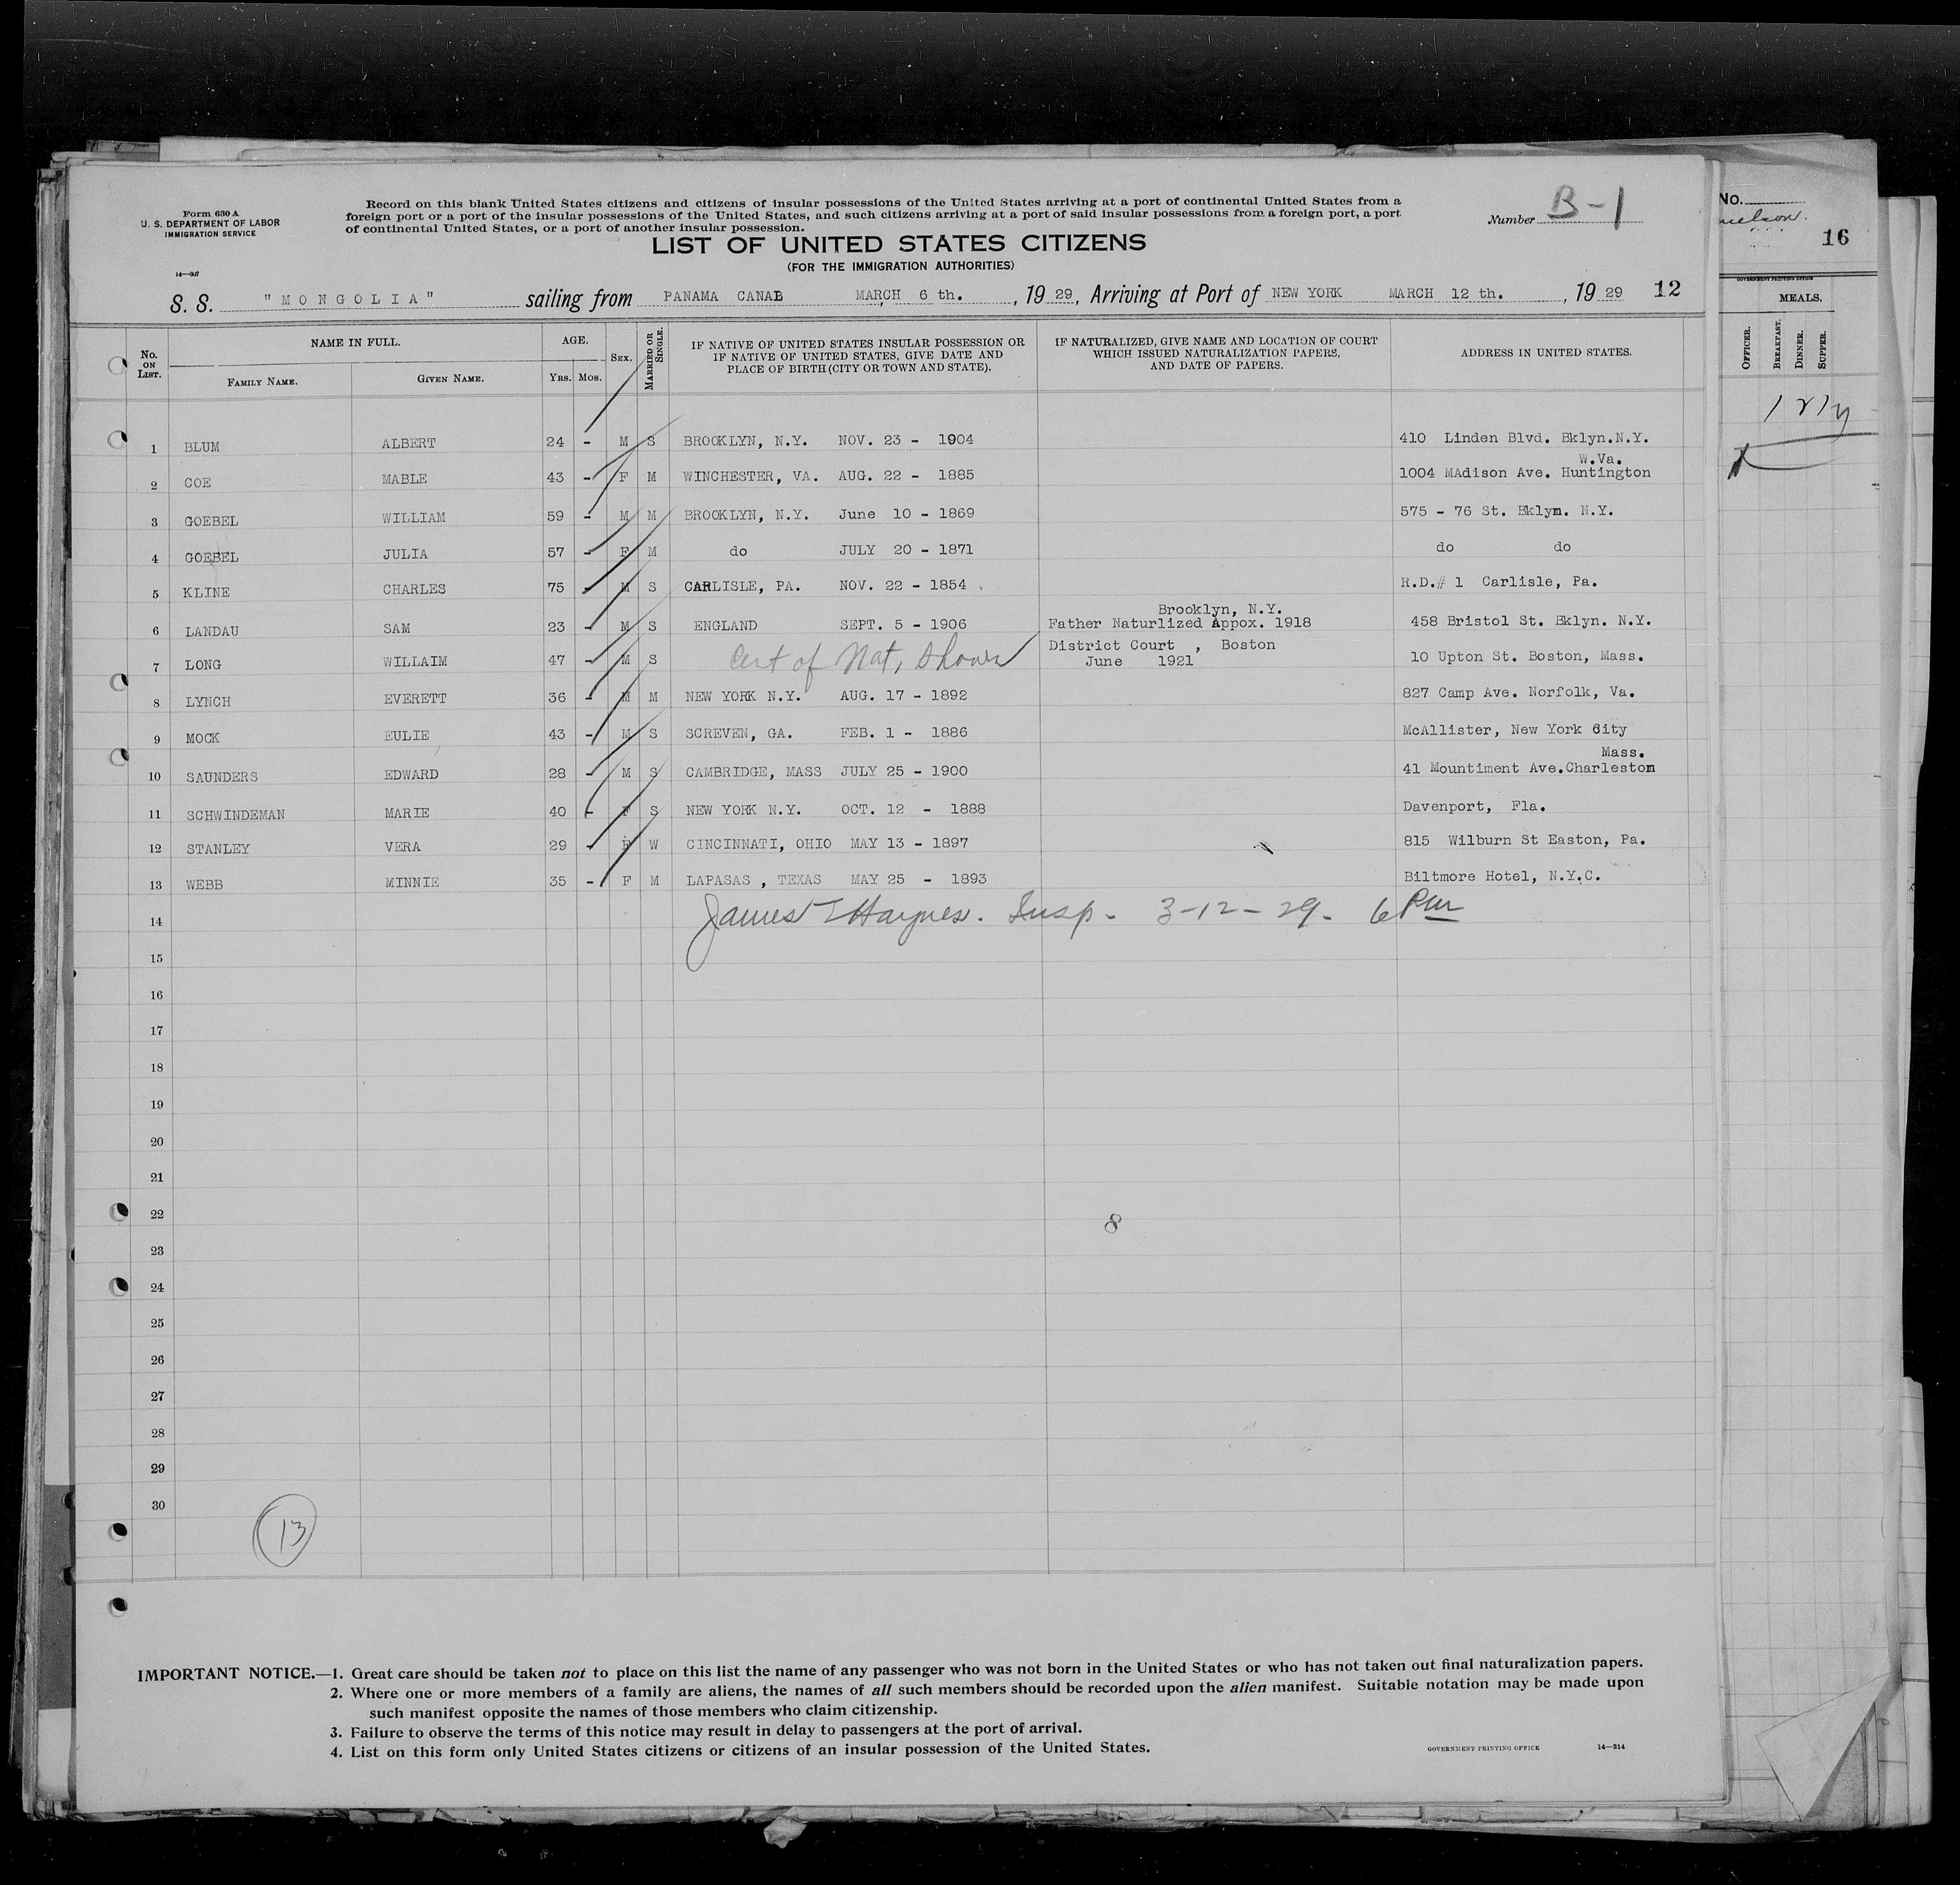 Form 630 A
U. S. DEPARTMENT OF LABOR
IMMIGRATION SERVICE
14—307
Record on this blank United States citizens and citizens of insular possessions of the United States arriving at a port of continental United States from a
foreign port or a port of the insular possessions of the United States, and such citizens arriving at a port of said insular possessions from a foreign port, a port
of continental United States, or a port of another insular possession.
Number B-1
LIST OF UNITED STATES CITIZENS
(FOR THE IMMIGRATION AUTHORITIES)
S. S. "MONGOLIA" sailing from PANAMA CANAL MARCH 6 th. , 19 29, Arriving at Port of NEW YORK MARCH 12 th. , 19 29 12
No. ON LIST. NAME IN FULL. FAMILY NAME. GIVEN NAME. AGE. YRS. MOS. SEX. MARRIED OR SINGLE. IF NATIVE OF UNITED STATES INSULAR POSSESSION OR IF NATIVE OF UNITED STATES, GIVE DATE AND PLACE OF BIRTH (CITY OR TOWN AND STATE). IF NATURALIZED, GIVE NAME AND LOCATION OF COURT WHICH ISSUED NATURALIZATION PAPERS, AND DATE OF PAPERS. ADDRESS IN UNITED STATES.
1 BLUM ALBERT 24 - M S BROOKLYN, N.Y. NOV. 23 - 1904 410 Linden Blvd. Bklyn.N.Y.
W.Va.
2 COE MABLE 43 - F M WINCHESTER, VA. AUG. 22 - 1885 1004 MAdison Ave. Huntington
3 GOEBEL WILLIAM 59 - M M BROOKLYN, N.Y. June 10 - 1869 575 - 76 St. Bklyn. N.Y.
4 GOEBEL JULIA 57 - F M do JULY 20 - 1871 do do
5 KLINE CHARLES 75 - M S CARLISLE, PA. NOV. 22 - 1854 R.D.# 1 Carlisle, Pa.
Brooklyn, N.Y.
6 LANDAU SAM 23 - M S ENGLAND SEPT. 5 - 1906 Father Naturlized Appox. 1918 458 Bristol St. Bklyn. N.Y.
District Court , Boston
7 LONG WILLAIM 47 - M S Cert of Nat, shown June 1921 10 Upton St. Boston, Mass.
8 LYNCH EVERETT 36 - M M NEW YORK N.Y. AUG. 17 - 1892 827 Camp Ave. Norfolk, Va.
9 MOCK EULIE 43 - M S SCREVEN, GA. FEB. 1 - 1886 McAllister, New York City
Mass.
10 SAUNDERS EDWARD 28 - M S CAMBRIDGE, MASS JULY 25 - 1900 41 Mountiment Ave.Charleston
11 SCHWINDEMAN MARIE 40 - F S NEW YORK N.Y. OCT. 12 - 1888 Davenport, Fla.
12 STANLEY VERA 29 - F W CINCINNATI, OHIO MAY 13 - 1897 815 Wilburn St Easton, Pa.
13 WEBB MINNIE 35 - F M LAPASAS , TEXAS MAY 25 - 1893 Biltmore Hotel, N.Y.C.
14 James T Haynes. Insp. 3-12-29. 6 Pm
15
16
17
18
19
20
21
22 8
23
24
25
26
27
28
29
30
13
IMPORTANT NOTICE.—1. Great care should be taken not to place on this list the name of any passenger who was not born in the United States or who has not taken out final naturalization papers.
2. Where one or more members of a family are aliens, the names of all such members should be recorded upon the alien manifest. Suitable notation may be made upon
such manifest opposite the names of those members who claim citizenship.
3. Failure to observe the terms of this notice may result in delay to passengers at the port of arrival.
4. List on this form only United States citizens or citizens of an insular possession of the United States.
GOVERNMENT PRINTING OFFICE 14—214
No.
16
GOVERNMENT PRINTING OFFICE
MEALS.
OFFICER. BREAKFAST. DINNER. SUPPER.